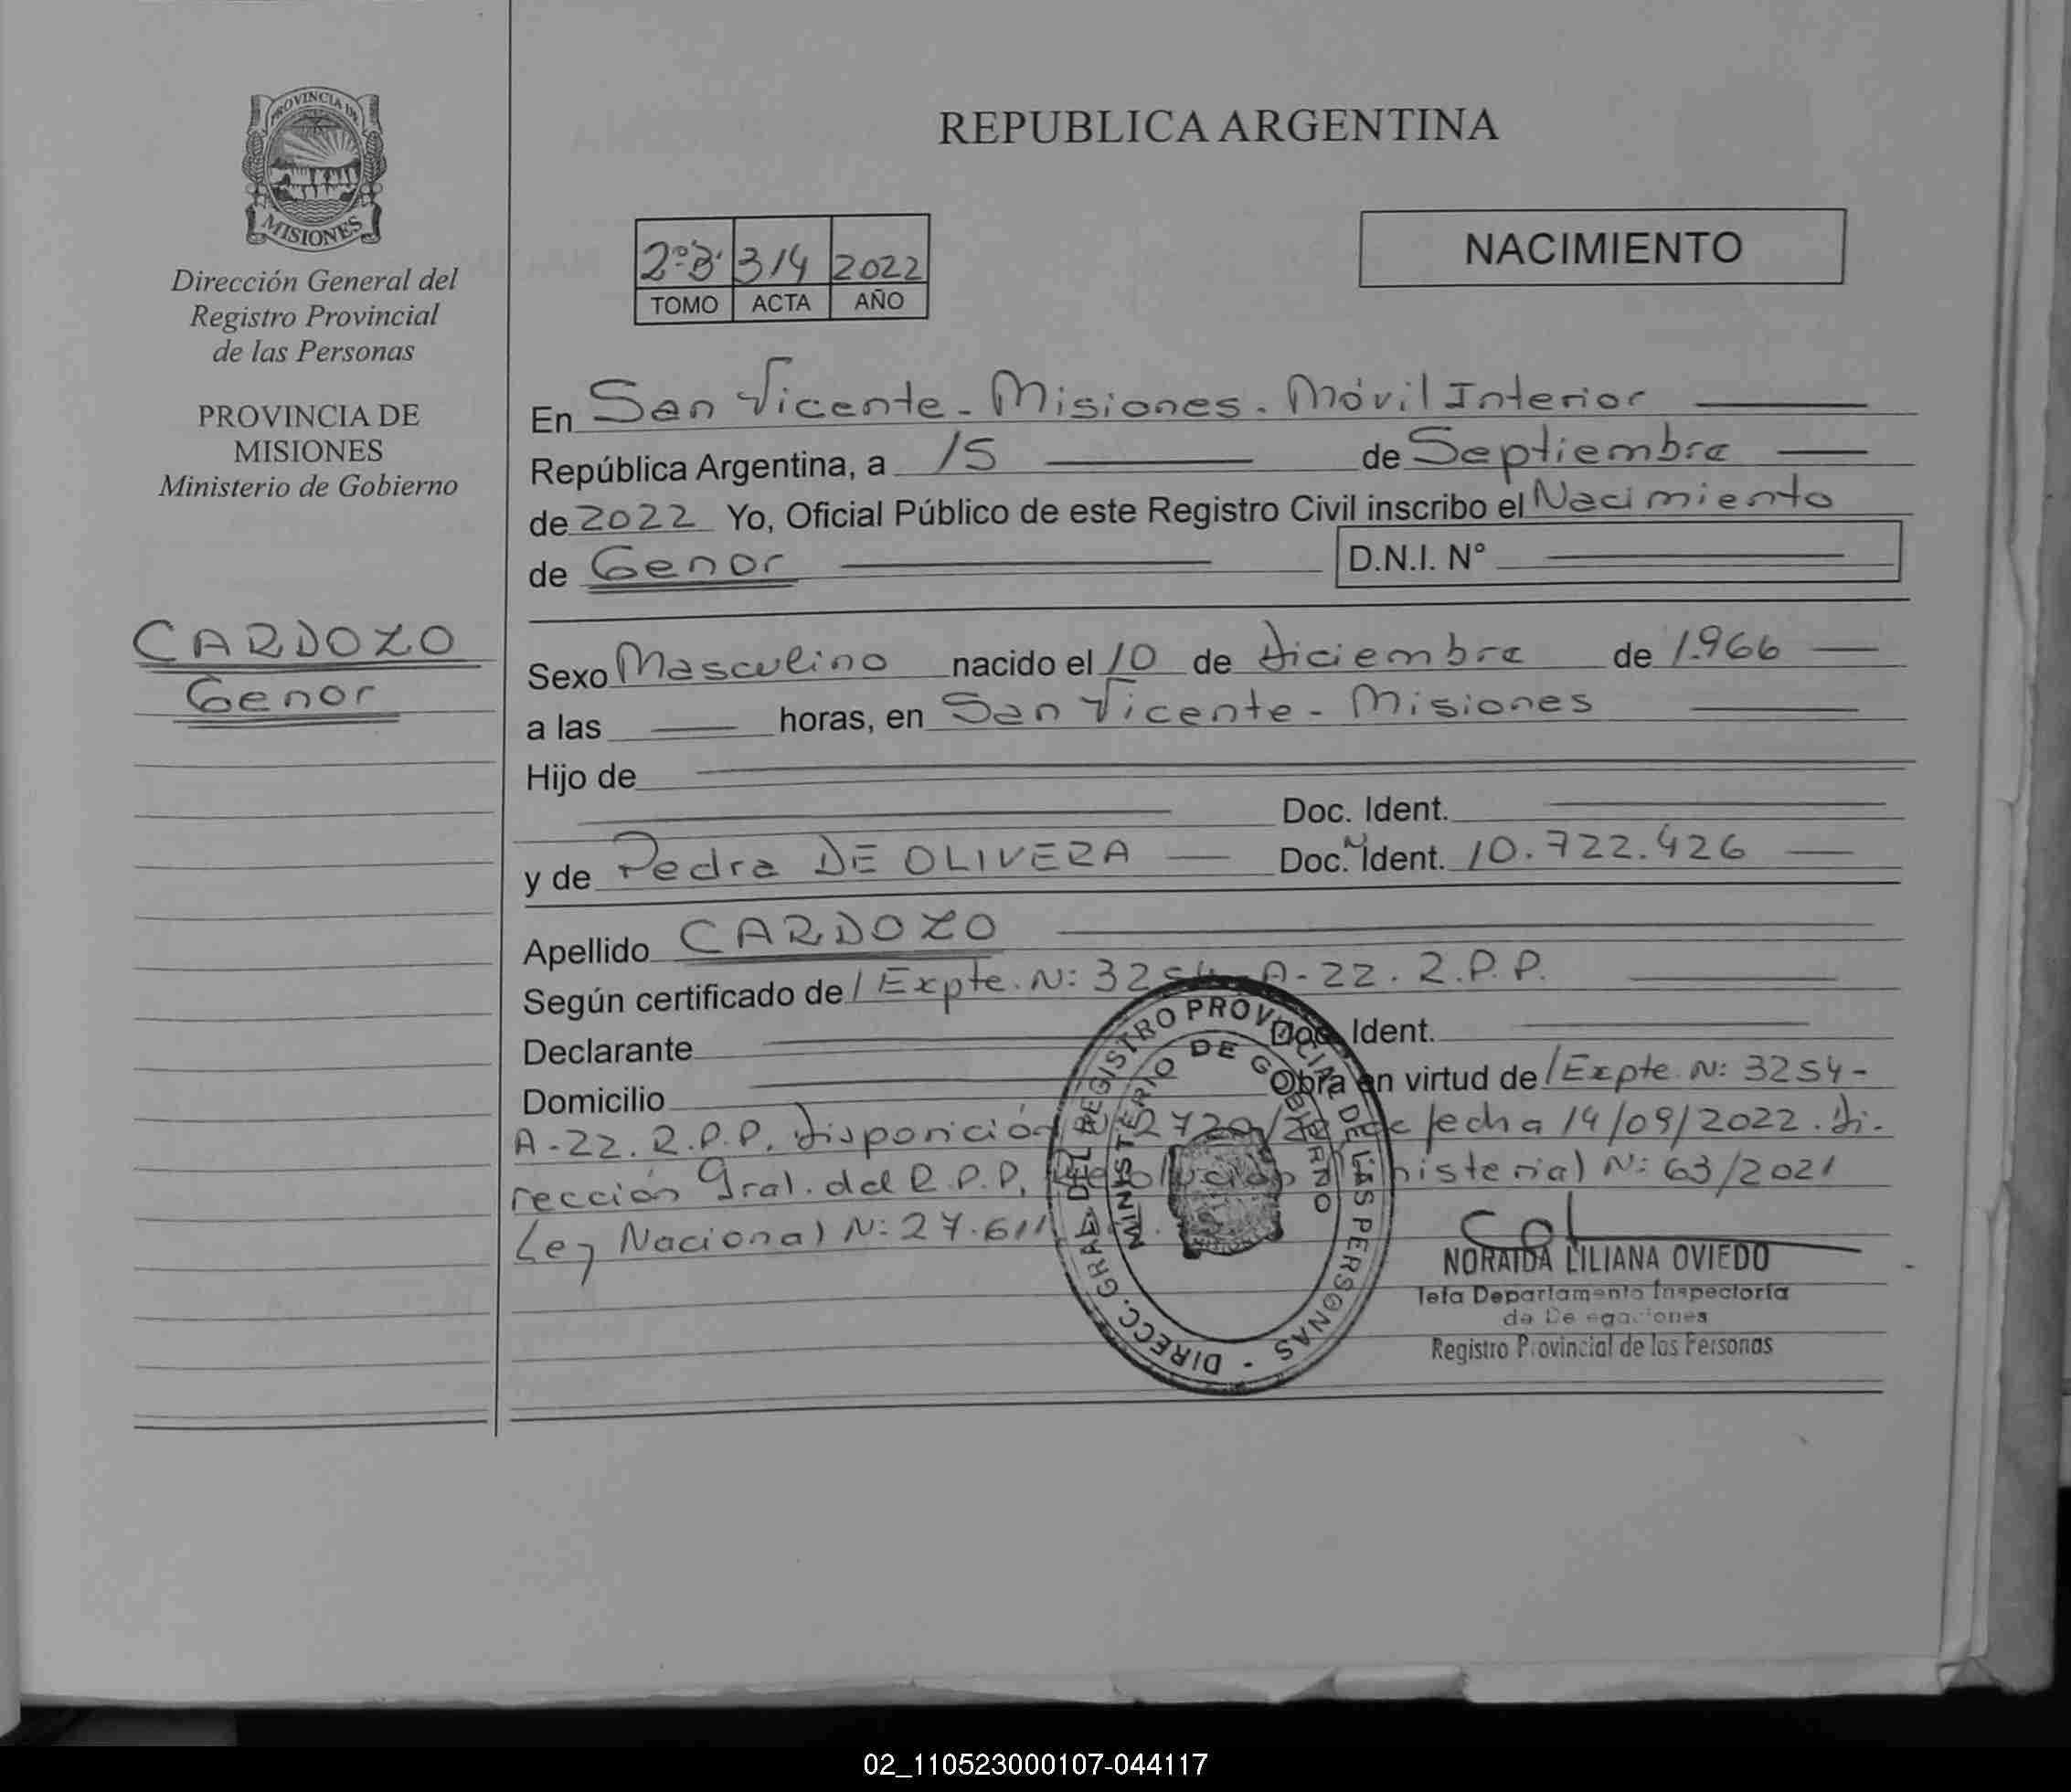 PROVINCIA DE
MISIONES
Dirección General del
Registro Provincial
de las Personas
PROVINCIA DE
MISIONES
Ministerio de Gobierno
CARDOZO
Genor
REPUBLICA ARGENTINA
2º"B" 314 2022
TOMO ACTA AÑO
NACIMIENTO
En San Vicente - Misiones. Móvil Interior
República Argentina, a 15 de Septiembre
de 2022 Yo, Oficial Público de este Registro Civil inscribo el Nacimiento
de Genor D.N.I. Nº
Sexo Masculino nacido el 10 de Diciembre de 1.966
a las horas, en San Vicente - Misiones
Hijo de
Doc. Ident.
y de Pedra DE OLIVERA Doc. N Ident. 10.722.426
Apellido CARDOZO
Según certificado de / Expte. N: 3254-A-22. R.P.P.
Declarante Doc. Ident.
Domicilio Obra en virtud de / Expte. N: 3254-
A-22. R.P.P. Disposición de fecha 14/09/2022. Di-
rección Gral. del R.P.P. Resolución Ministerial N: 63/2021
Ley Nacional N: 27.611
DIRECC. GRAL. DEL REGISTRO PROVINCIAL DE LAS PERSONAS -
MINISTERIO DE GOBIERNO
NORAIDA LILIANA OVIEDO
Jefa Departamento Inspectoría
de Delegaciones
Registro Provincial de las Personas
02_110523000107-044117